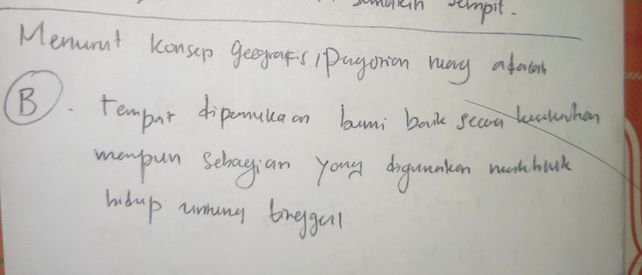 semakin sempit.
Menurut konsep geografis, pengertian ruang adalah
B. tempat dipermukaan bumi baik secara keseluruhan
maupun sebagian yang digunakan makhluk
hidup untuk tinggal